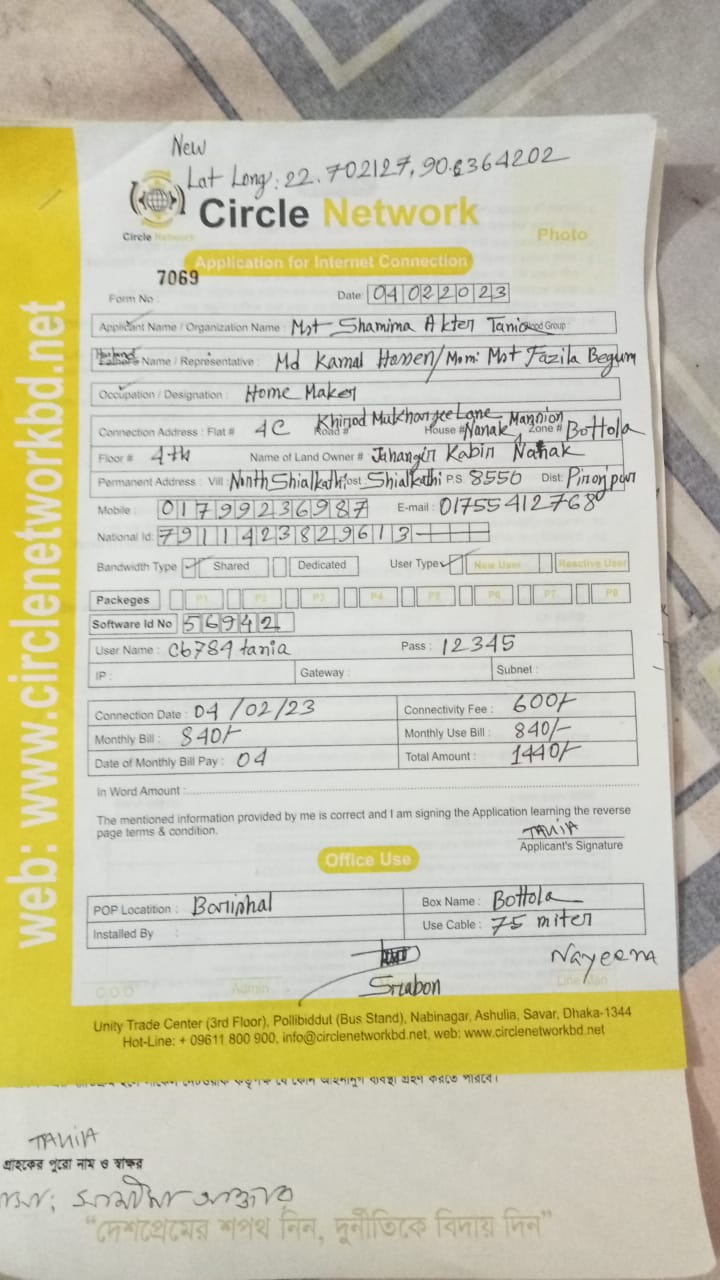 New
Lat Long: 22.702127, 90.6364202
Circle Network
Circle Network
Photo
Application for Internet Connection
7069
Form No :
Date: 04022023
Applicant Name / Organization Name : Mst Shamima Akter Tania Blood Group :
Husband Name / Representative : Md Kamal Hossen/Mom: Mst Fazila Begum
Occupation / Designation : Home Maker
Connection Address : Flat # 4C Road # Khirod Mukharjee Lane House # Nanak Mannion Zone # Bottola
Floor # 4th Name of Land Owner # Jahangir Kabir Nanak
Permanent Address : Vill North Shialkathi Post Shialkathi P.S 8550 Dist: Pirojpur
Mobile : 01799236987 E-mail : 01755412768
National Id: 7911423829613
Bandwidth Type Shared Dedicated User Type New User Reactive User
Packeges P1 P2 P3 P4 P5 P6 P7 P8
Software Id No 56942
User Name : cb784tania Pass : 12345
IP : Gateway : Subnet :
Connection Date : 04/02/23 Connectivity Fee : 600/-
Monthly Bill : 840/- Monthly Use Bill : 840/-
Date of Monthly Bill Pay : 04 Total Amount : 1440/-
In Word Amount :
The mentioned information provided by me is correct and I am signing the Application learning the reverse
page terms & condition.
TANIA
Applicant's Signature
Office Use
POP Locatition : Boriiphal Box Name : Bottola
Installed By : Use Cable : 75 miter
Srabon
Nayeema
C.O.O Admin Line Man
Unity Trade Center (3rd Floor), Pollibiddut (Bus Stand), Nabinagar, Ashulia, Savar, Dhaka-1344
Hot-Line: + 09611 800 900, info@circlenetworkbd.net, web: www.circlenetworkbd.net
web: www.circlenetworkbd.net
TANIA
গ্রাহকের পুরো নাম ও স্বাক্ষর
"দেশপ্রেমের শপথ নিন, দুর্নীতিকে বিদায় দিন"